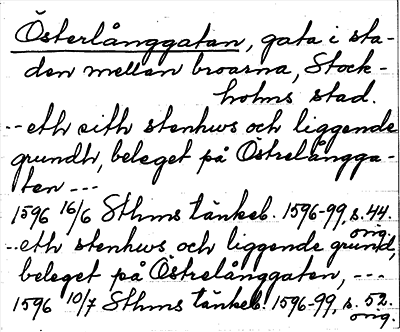 Österlånggatan, gata i sta-
den mellan broarna, Stock-
holms stad.
--eth sith stenhws och liggende
grundh, beleget på Östrelångga-
ten ---
1596 16/6 Sthms tänkeb. 1596-99, s. 44.
orig.
--eth stenhws och liggende grund,
beleget på Östrelånggaten, ---
1596 10/7 Sthms tänkeb. 1596-99, s. 52.
orig.